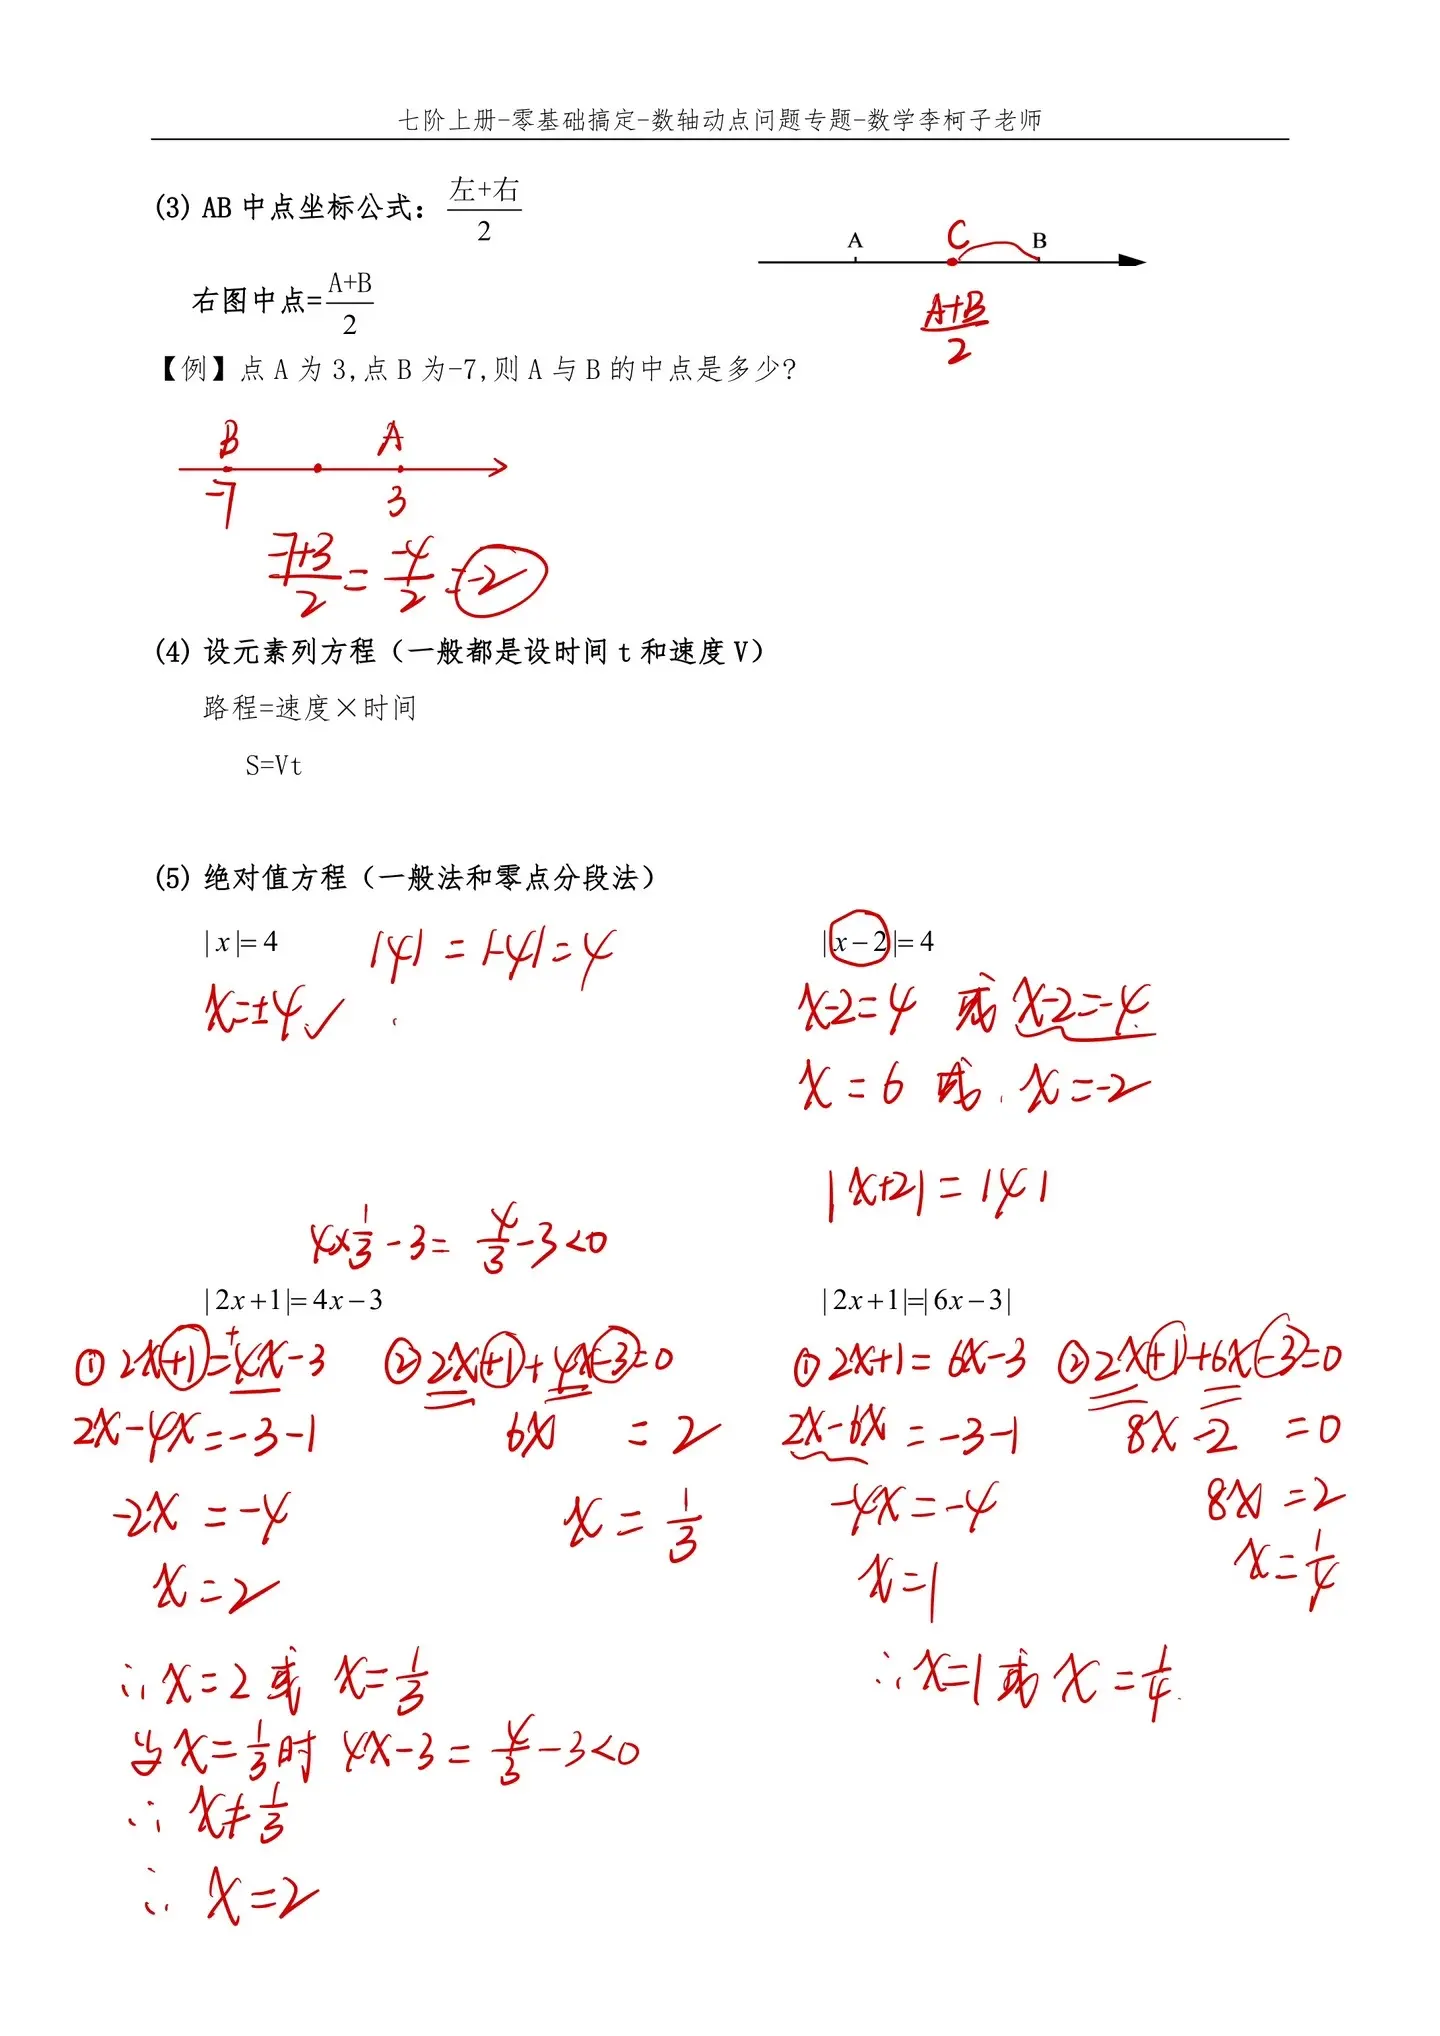 七阶上册-零基础搞定-数轴动点问题专题-数学李柯子老师
(3) AB中点坐标公式：左+右/2
A C B
A+B/2
右图中点=A+B/2
【例】点A为3,点B为-7,则A与B的中点是多少?
B A
-7 3
-7+3/2 = -4/2 = -2
(4) 设元素列方程（一般都是设时间t和速度V）
路程=速度×时间
S=Vt
(5) 绝对值方程（一般法和零点分段法）
|x|=4 |4| = |-4| = 4
x=±4 ✓
|x-2|=4
x-2=4 或 x-2=-4
x=6 或 x=-2
|x+2|=|4|
4×1/3-3=4/3-3<0
|2x+1|=4x-3
① 2x+1=+4x-3
2x-4x=-3-1
-2x=-4
x=2
② 2x+1+4x-3=0
6x=2
x=1/3
∴x=2或 x=1/3
当x=1/3时 4x-3=4/3-3<0
∴ x≠1/3
∴ x=2
|2x+1|=|6x-3|
① 2x+1=6x-3
2x-6x=-3-1
-4x=-4
x=1
② 2x+1+6x-3=0
8x-2=0
8x=2
x=1/4
∴x=1或 x=1/4